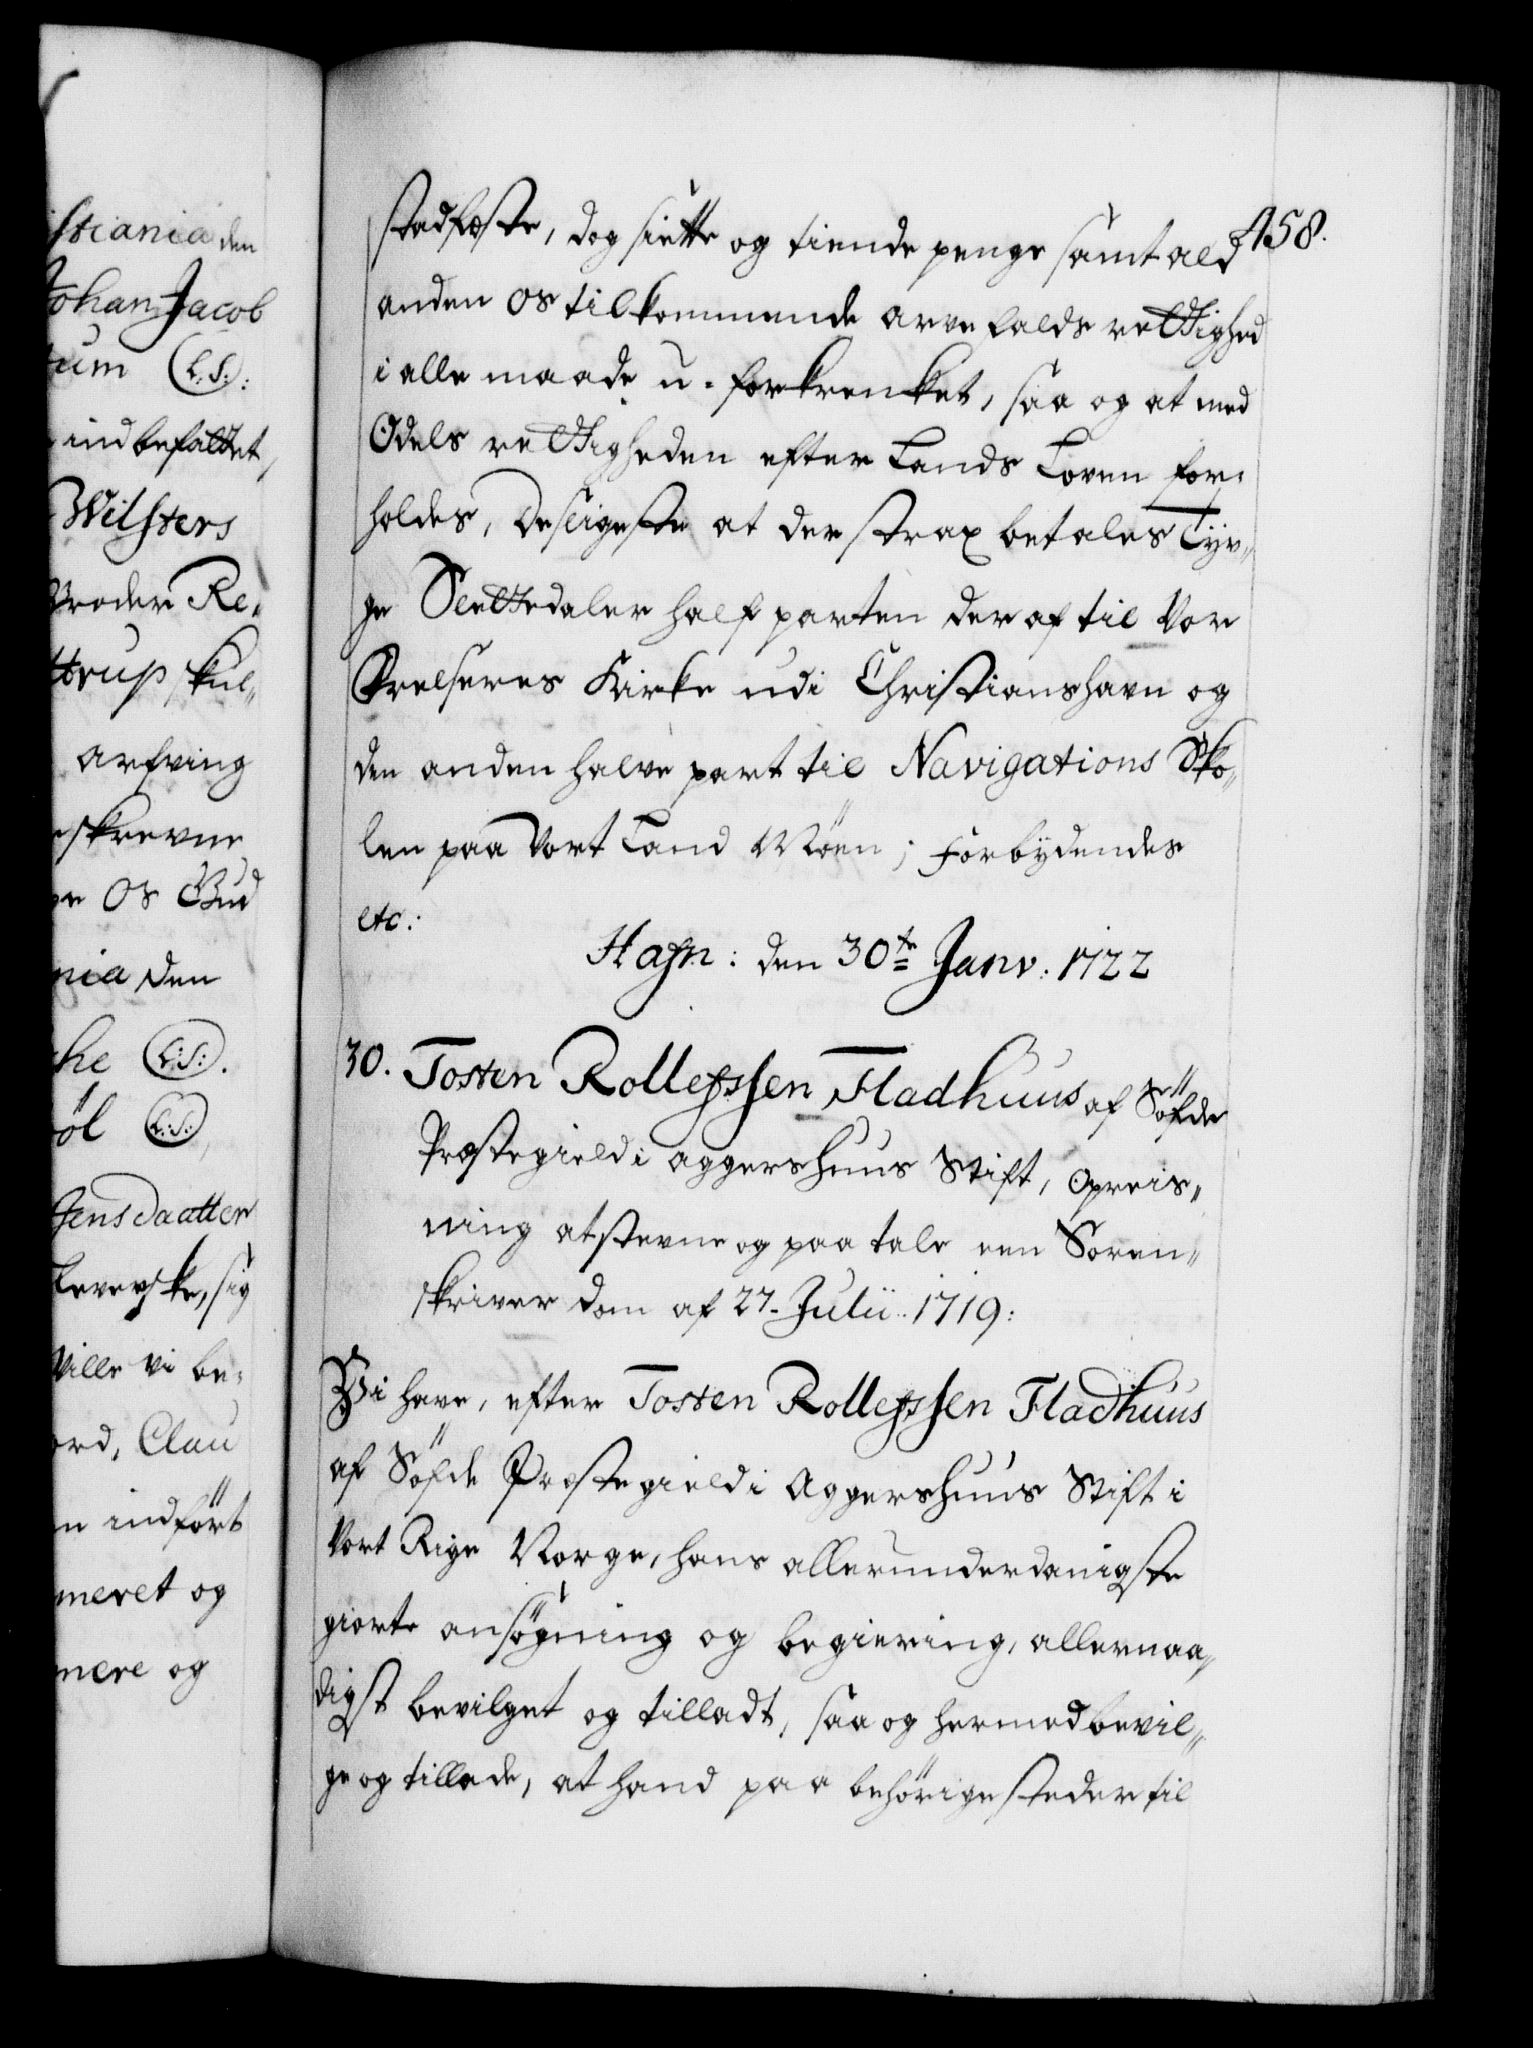 istiania den
Johan Jacob
tum L.S.:
indbefattet,
Wilsters
Broder Re-
ttrup skul-
arfving
eskrevne
ge Os Gud
nia den
che L:S:.
öl L:S:,
Jensdaatter
Leverske, sig
Ville vi be-
ord, Clau
en indfört
meret og
mere og
458.
stadfæste, dog siette og tiende penge samt ald
anden os tilkommende arvefalds rettighed
i alle maade u-forkrenket, saa og at med
Odels rettigheden efter Lands Loven for-
holdes, desligeste at der strax betales Tyv-
ge Slettedaler half parten der af til Vor
Frelseres Kirke udi Christianshavn og
den anden halve part til Navigations Sko-
len paa Vort Land Möen; Forbydendes
etc:
Hafn: den 30te Janv: 1722
30. Tosten Rollefssen Fladhuus af Söfde
Præstegield i Aggershuus Stift, Opreis-
ning at stevne og paatale een Soren-
skriver dom af 27. Julii 1719:
Vi have, efter Tosten Rollefssen Fladhuus
af Söfde Præstegield i Aggershuus Stift i
Vort Rige Norge, hans allerunderdanigste
giorte ansögning og begiering, allernaa-
digst bevilget og tilladt, saa og hermed bevil-
ge og tillade, at hand paa behörige steder til